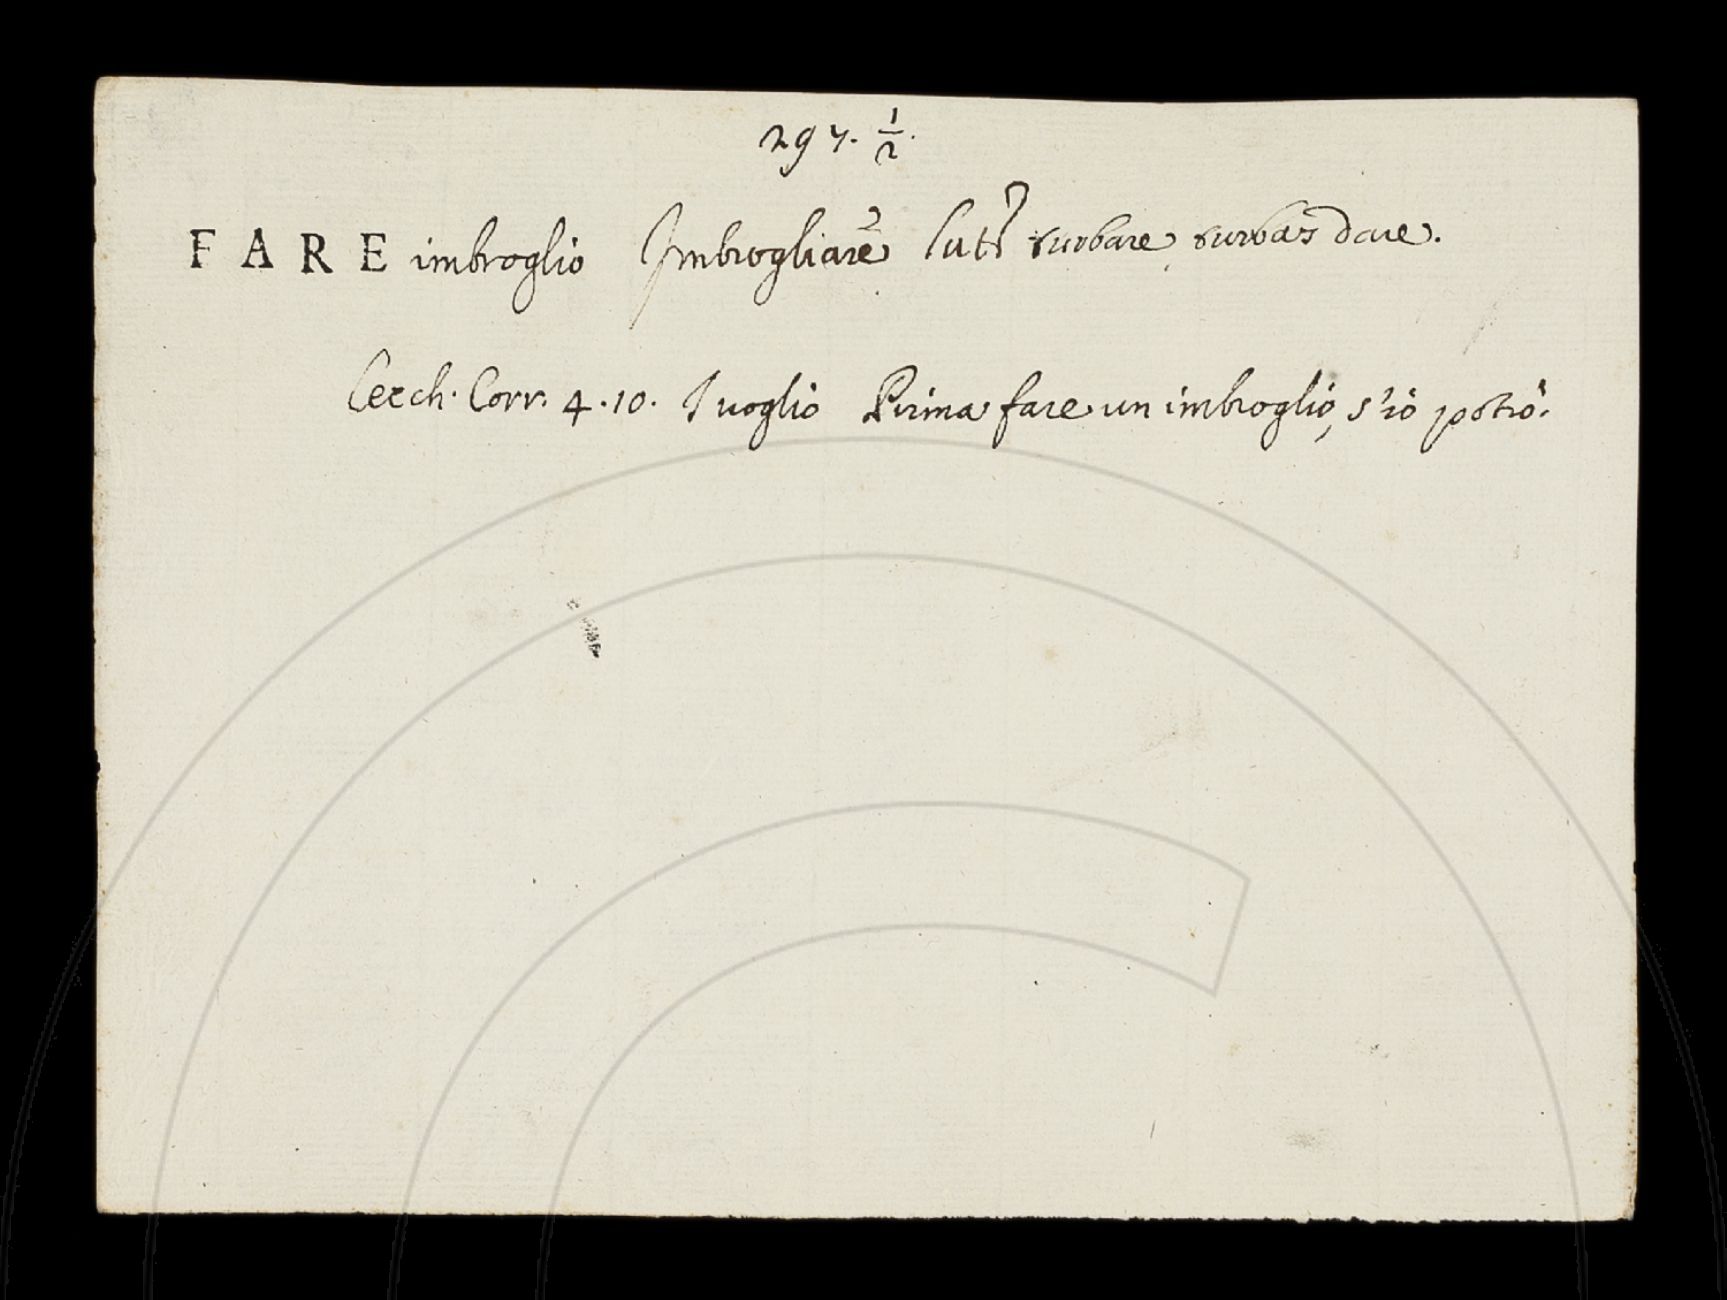 297. 1/2.
FARE imbroglio Imbrogliare Lat. turbare, turbas dare.
Cecch. Corr. 4.10. I voglio Prima fare un imbroglio, s'io potrò.